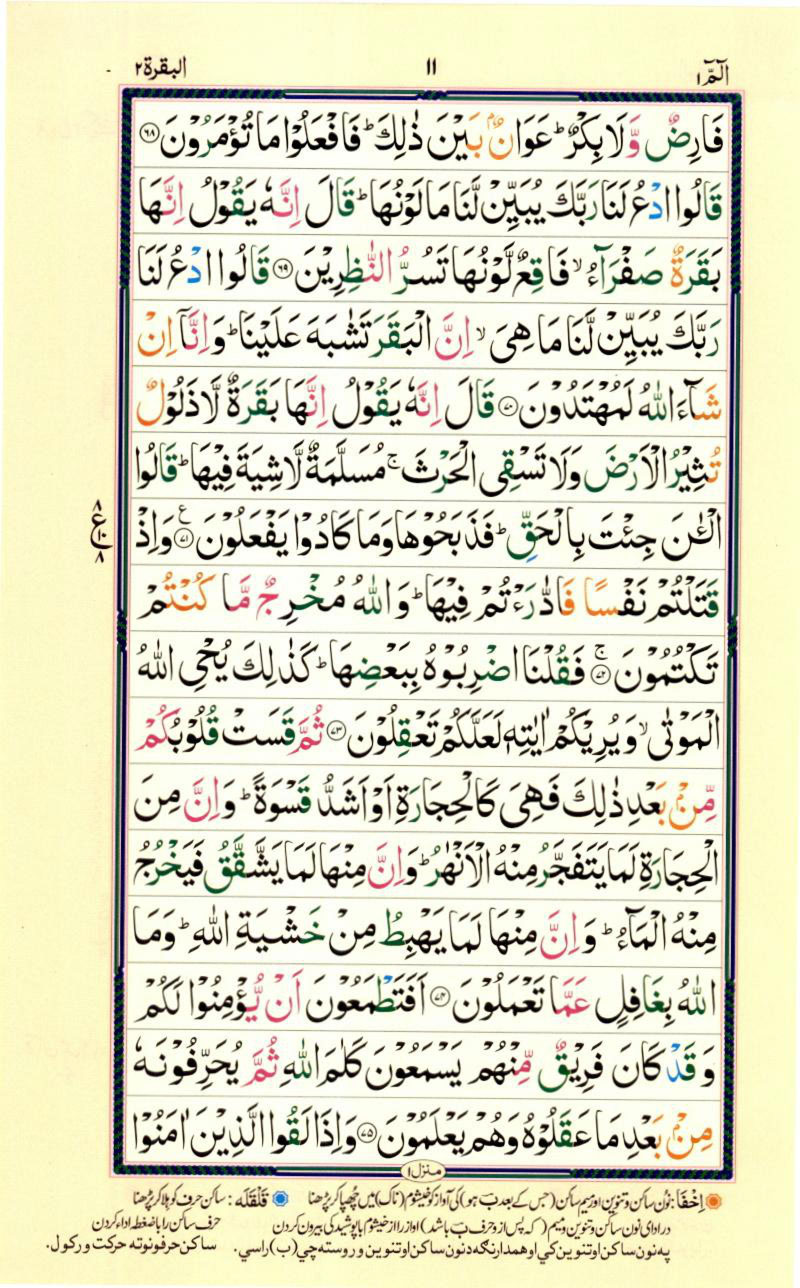 الٓمّٓ ١ ١١ البقرة ٢
فَارِضٌ وَّلَا بِكْرٌ ؕ عَوَانٌۢ بَيْنَ ذٰلِكَ ؕ فَافْعَلُوْا مَا تُؤْمَرُوْنَ ﴿۶۸﴾
قَالُوا ادْعُ لَنَا رَبَّكَ يُبَيِّنْ لَّنَا مَا لَوْنُهَا ؕ قَالَ اِنَّهٗ يَقُوْلُ اِنَّهَا
بَقَرَةٌ صَفْرَآءُ ۙ فَاقِعٌ لَّوْنُهَا تَسُرُّ النّٰظِرِيْنَ ﴿۶۹﴾ قَالُوا ادْعُ لَنَا
رَبَّكَ يُبَيِّنْ لَّنَا مَا هِىَ ۙ اِنَّ الْبَقَرَ تَشٰبَهَ عَلَيْنَا ؕ وَاِنَّاۤ اِنْ
شَآءَ اللّٰهُ لَمُهْتَدُوْنَ ﴿۷۰﴾ قَالَ اِنَّهٗ يَقُوْلُ اِنَّهَا بَقَرَةٌ لَّا ذَلُوْلٌ
تُثِيْرُ الْاَرْضَ وَلَا تَسْقِى الْحَرْثَ ۚ مُسَلَّمَةٌ لَّاشِيَةَ فِيْهَا ؕ قَالُوا
الْـٰٔنَ جِئْتَ بِالْحَقِّ ؕ فَذَبَحُوْهَا وَمَا كَادُوْا يَفْعَلُوْنَ ﴿۷۱﴾ ع وَاِذْ
٨ ع ١٠ ٨
قَتَلْتُمْ نَفْسًا فَادّٰرَءْتُمْ فِيْهَا ؕ وَاللّٰهُ مُخْرِجٌ مَّا كُنْتُمْ
تَكْتُمُوْنَ ﴿۷۲﴾ ۚ فَقُلْنَا اضْرِبُوْهُ بِبَعْضِهَا ؕ كَذٰلِكَ يُحْىِ اللّٰهُ
الْمَوْتٰى ۙ وَيُرِيْكُمْ اٰيٰتِهٖ لَعَلَّكُمْ تَعْقِلُوْنَ ﴿۷۳﴾ ثُمَّ قَسَتْ قُلُوْبُكُمْ
مِّنْۢ بَعْدِ ذٰلِكَ فَهِىَ كَالْحِجَارَةِ اَوْ اَشَدُّ قَسْوَةً ؕ وَاِنَّ مِنَ
الْحِجَارَةِ لَمَا يَتَفَجَّرُ مِنْهُ الْاَنْهٰرُ ؕ وَاِنَّ مِنْهَا لَمَا يَشَّقَّقُ فَيَخْرُجُ
مِنْهُ الْمَآءُ ؕ وَاِنَّ مِنْهَا لَمَا يَهْبِطُ مِنْ خَشْيَةِ اللّٰهِ ؕ وَمَا
اللّٰهُ بِغَافِلٍ عَمَّا تَعْمَلُوْنَ ﴿۷۴﴾ اَفَتَطْمَعُوْنَ اَنْ يُّؤْمِنُوْا لَكُمْ
وَقَدْ كَانَ فَرِيْقٌ مِّنْهُمْ يَسْمَعُوْنَ كَلٰمَ اللّٰهِ ثُمَّ يُحَرِّفُوْنَهٗ
مِنْۢ بَعْدِ مَا عَقَلُوْهُ وَهُمْ يَعْلَمُوْنَ ﴿۷۵﴾ وَاِذَا لَقُوا الَّذِيْنَ اٰمَنُوْا
منزل ١
اِخفَا: نون ساکن و تنوین اور میم ساکن (جس کے بعد بَ ہو) کی آواز کو خیشوم (ناک) میں چھپا کر پڑھنا قَلْقَلَه: ساکن حرف کو ہلا کر پڑھنا
در ادای نون ساکن و تنوین و میم (که پس از و حرف بَ باشد) آواز را از خیشوم با پوشیدگی بیرون کردن حرف ساکن را با ضغطه اداء کردن
په نون ساکن او تنوین کي او همدارنګه د نون ساکن او تنوین وروسته چي (ب) راسي. ساکن حرفونو ته حرکت ورکول.